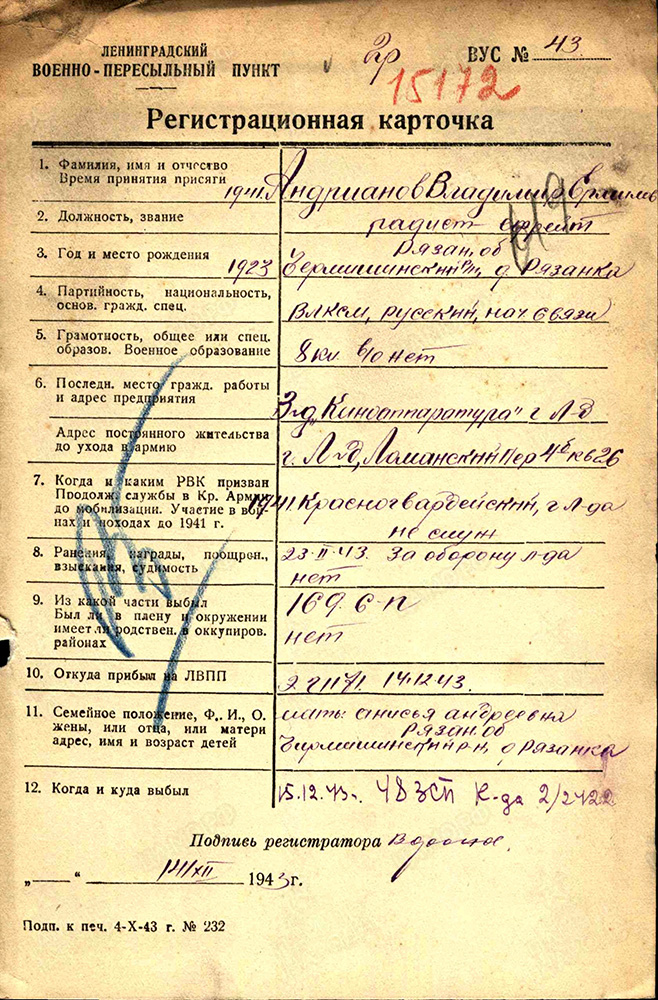 ЛЕНИНГРАДСКИЙ
ВОЕННО-ПЕРЕСЫЛЬНЫЙ ПУНКТ
2р
ВУС № 43
15172
Регистрационная карточка
1. Фамилия, имя и отчество
Время принятия присяги
1941 Андрианов Владимир
2. Должность, звание
радист
3. Год и место рождения
1923
Рязан. об
Чермишинский рн, д. Рязанка
4. Партийность, национальность,
основ. гражд. спец.
ВЛКСМ, русский, нач связи
5. Грамотность, общее или спец.
образов. Военное образование
8 кл в/о нет
6. Последн. место гражд. работы
и адрес предприятия
З-д „Киноаппаратура" г Л-д
Адрес постоянного жительства
до ухода в армию
г. Л-д, Ломанский пер 4б кв 26
7. Когда и каким РВК призван
Продолж. службы в Кр. Армии
до мобилизации. Участие в вой-
нах и походах до 1941 г.
1941 Красногвардейский, г Л-да
не служ
8. Ранения, награды, поощрен.,
взыскания, судимость
23-II-43. За оборону Л-да
нет
9. Из какой части выбыл
Был ли в плену и окружении
имеет ли родствен. в оккупиров.
районах
169. с-п
нет
10. Откуда прибыл на ЛВПП
14.12.43.
11. Семейное положение, Ф., И., О.
жены, или отца, или матери
адрес, имя и возраст детей
мать: анисья андреевна
Рязан. об
Чирмашинский р-н, д Рязанка
12. Когда и куда выбыл
15.12.43г. 48 ЗСП К-да 2/2422
Подпись регистратора
„ “ 14/XII 1943г.
Подп. к печ. 4-X-43 г. № 232